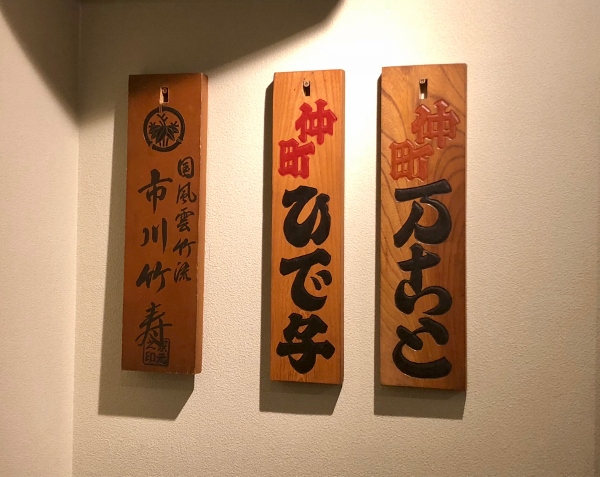 仲町
万さと
仲町
ひで子
国風雲竹流
市川竹寿